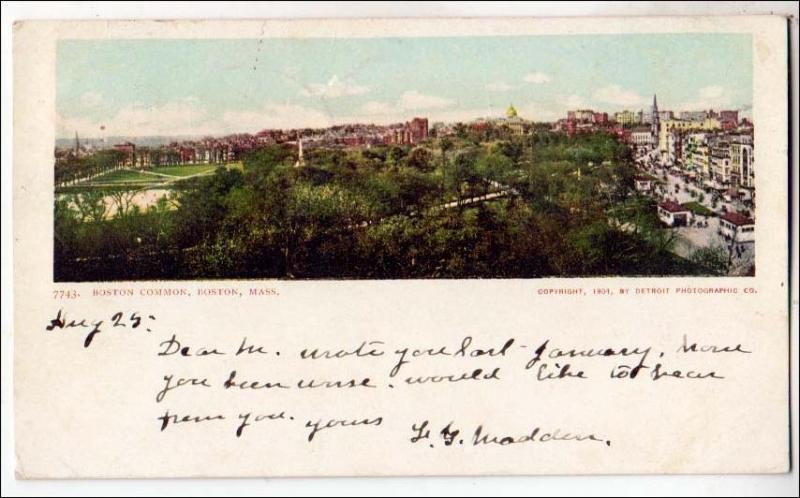 7743. BOSTON COMMON, BOSTON, MASS.
COPYRIGHT, 1904, BY DETROIT PHOTOGRAPHIC CO.
Aug 25.
Dear M. wrote you last January. Have
you been . would like to hear
from you. yours F. G. Madden.